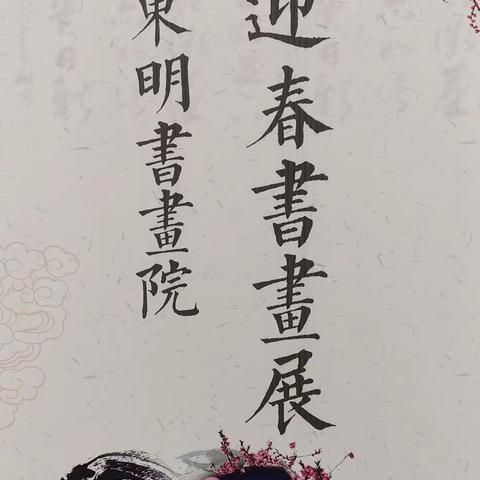 迎春書畫展
東明書畫院